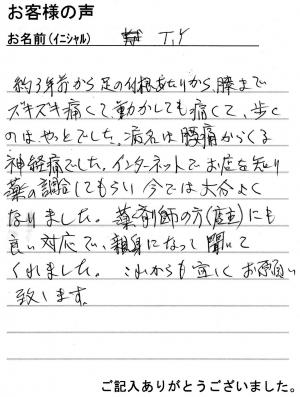 お客様の声
お名前(イニシャル) T.Y
約3年前から足の付根あたりから、膝まで
ズキズキ痛くて、動かしても痛くて、歩く
のはやっとでした。病名は腰痛からくる
神経痛でした。インターネットでお店を知り
薬の調合してもらい今では大分よく
なりました。薬剤師の方(店主)にも
良い対応でい、親身になって聞いて
くれました。これからも宜しくお願い
致します。
ご記入ありがとうございました。